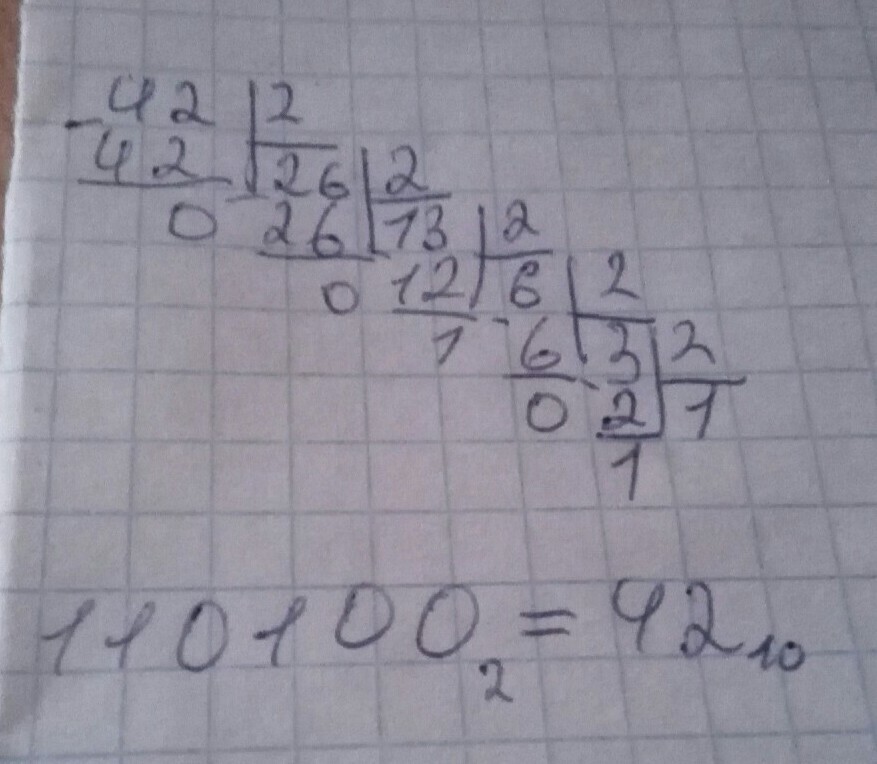 -42 | 2
42 | 26 | 2
0 - 26 | 13 | 2
0 12 | 6 | 2
1 - 6 | 3 | 2
0 - 2 | 1
1
110100₂ = 42₁₀